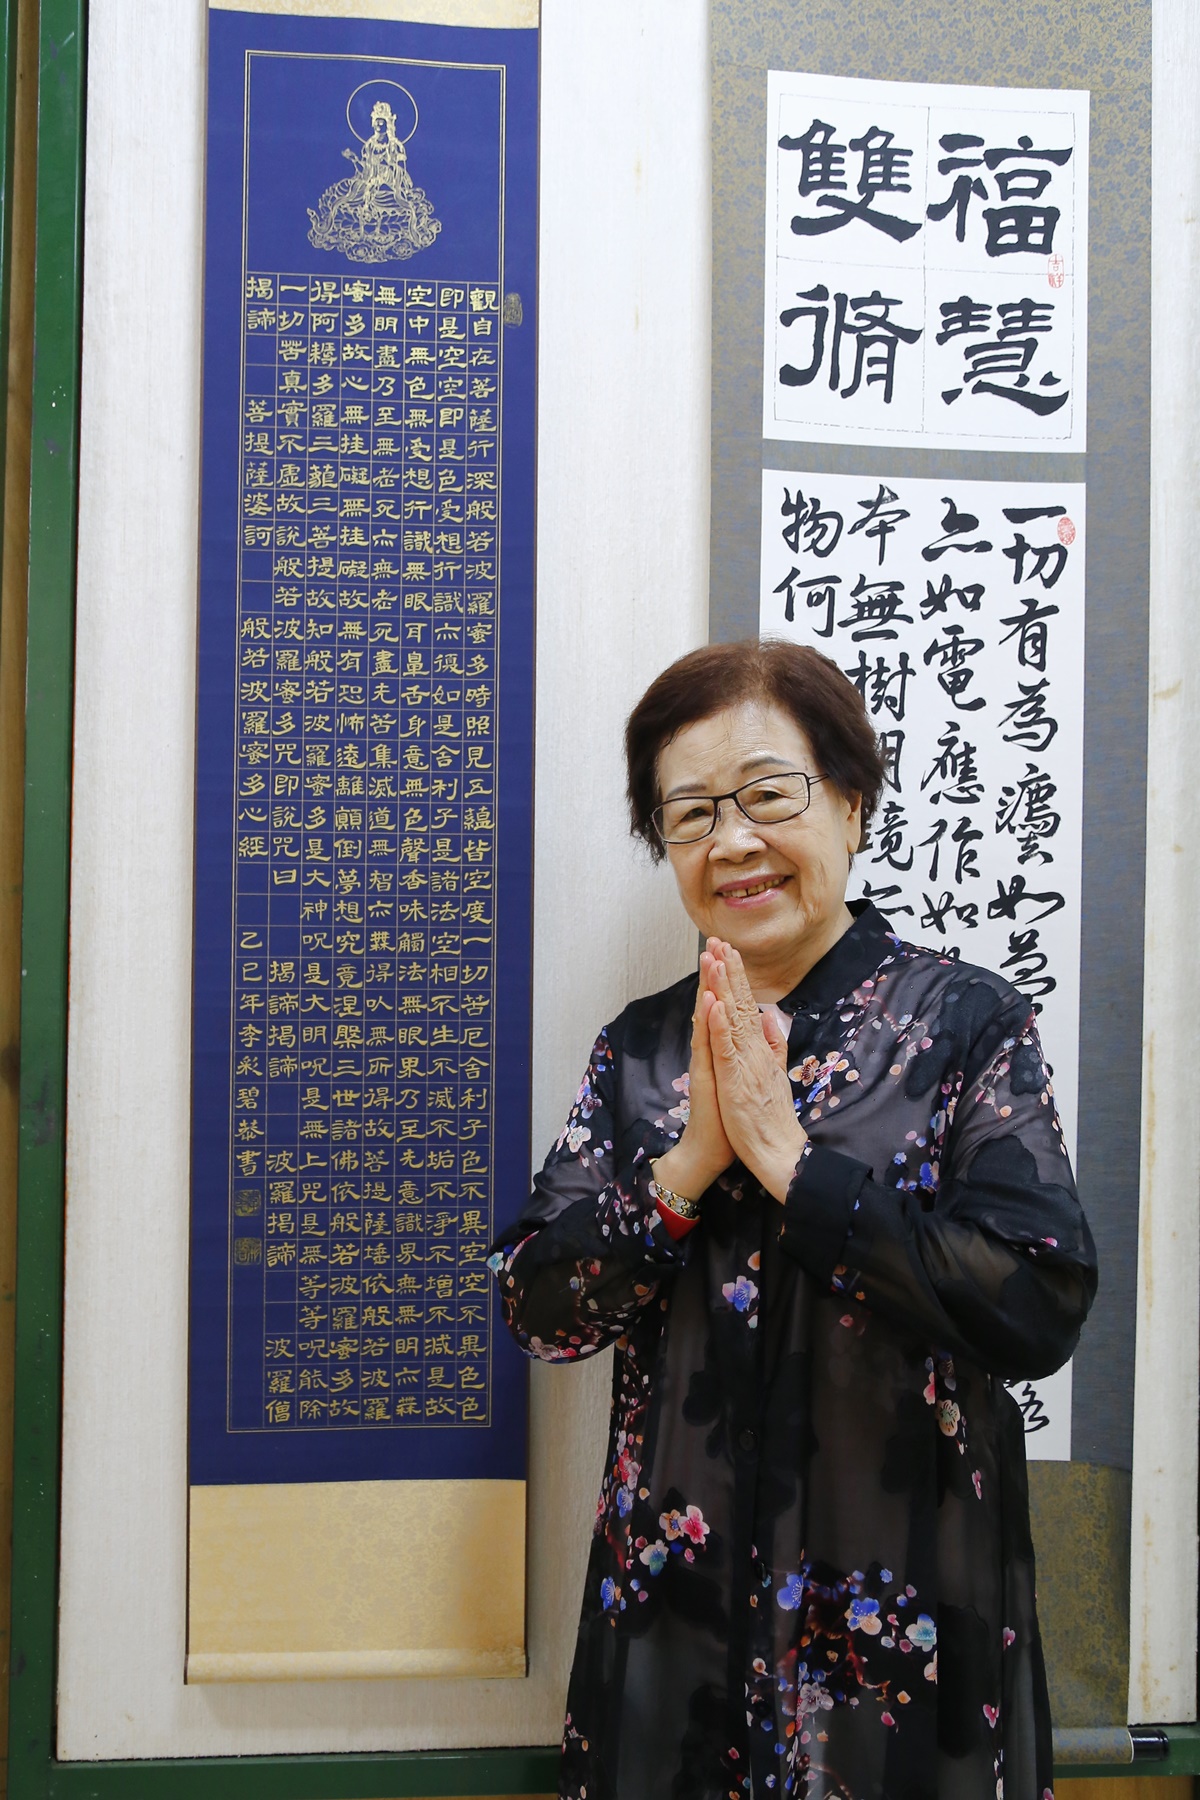 福慧
雙脩
吉祥
一切有為灋如夢
亦如電應作如
本無樹明鏡亦
物何
觀自在菩薩行深般若波羅蜜多時照見五蘊皆空度一切苦厄舍利子色不異空空不異色色
即是空空即是色受想行識亦復如是舍利子是諸法空相不生不滅不垢不淨不增不減是故
空中無色無受想行識無眼耳鼻舌身意無色聲香味觸法無眼界乃至无意識界無無明亦無
無明盡乃至無老死亦無老死盡无苦集滅道無智亦無得以無所得故菩提薩埵依般若波羅
蜜多故心無挂礙無挂礙故無有恐怖遠離顛倒夢想究竟涅槃三世諸佛依般若波羅蜜多故
得阿耨多羅三藐三菩提故知般若波羅蜜多是大神呪是大明呪是無上咒是無等等呪能除
一切苦真實不虛故說般若波羅蜜多咒即說咒曰 揭諦揭諦 波羅揭諦 波羅僧
揭諦 菩提薩婆訶 般若波羅蜜多心經 乙巳年李彩碧恭書